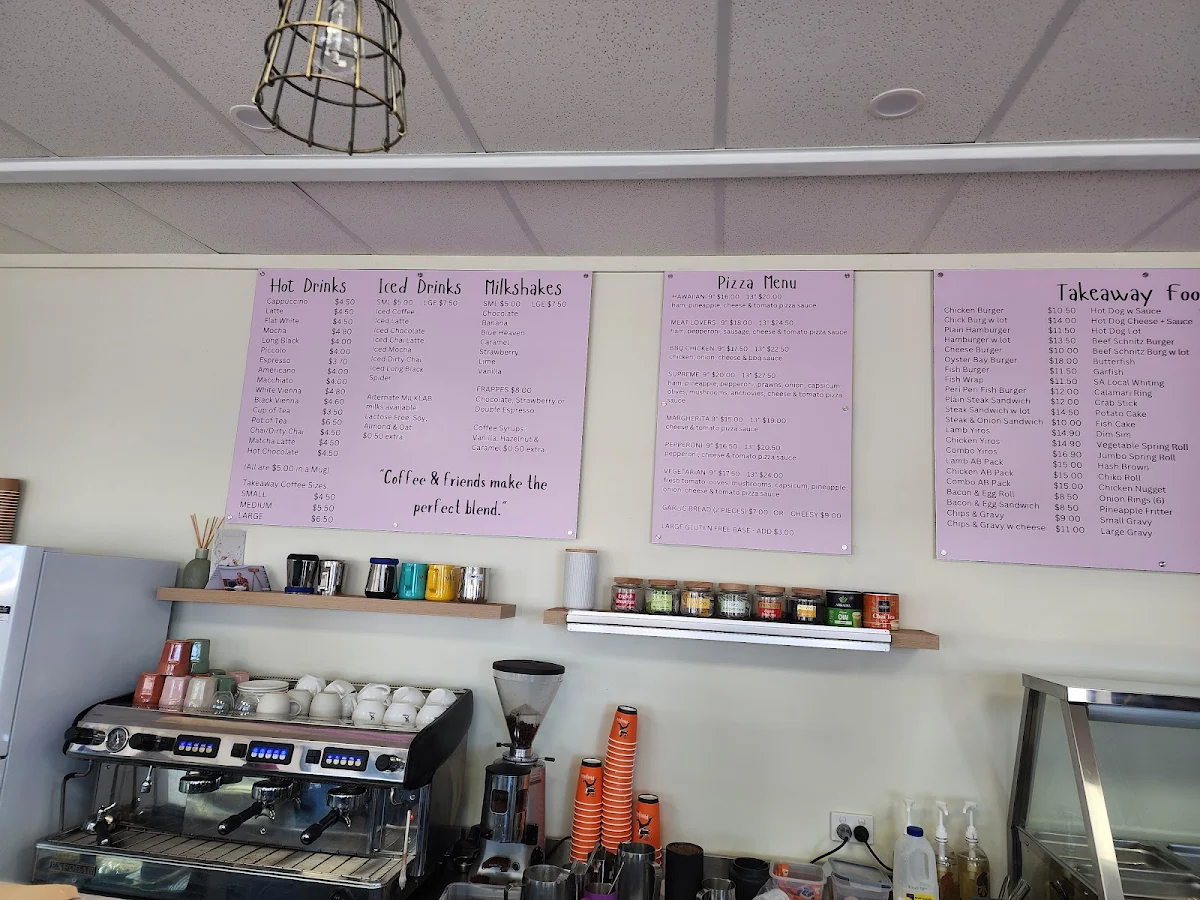 Hot Drinks
Cappuccino $4.50
Latte $4.50
Flat White $4.50
Mocha $4.80
Long Black $4.00
Piccolo $4.00
Espresso $3.70
Americano $4.00
Macchiato $4.00
White Vienna $4.80
Black Vienna $4.60
Cup of Tea $3.50
Pot of Tea $6.50
Chai/Dirty Chai $4.50
Matcha Latte $4.50
Hot Chocolate $4.50
(All are $5.00 in a Mug)
Takeaway Coffee Sizes
SMALL $4.50
MEDIUM $5.50
LARGE $6.50
Iced Drinks
SML $5.00 LGE $7.50
Iced Coffee
Iced Latte
Iced Chocolate
Iced Chai Latte
Iced Mocha
Iced Dirty Chai
Iced Long Black
Spider
Alternate MILKLAB
milks available
Lactose Free, Soy,
Almond & Oat
$0.50 extra
Milkshakes
SML $5.00 LGE $7.50
Chocolate
Banana
Blue Heaven
Caramel
Strawberry
Lime
Vanilla
FRAPPES $8.00
Chocolate, Strawberry or
Double Espresso
Coffee Syrups
Vanilla, Hazelnut &
Caramel $0.50 extra
"Coffee & Friends make the
perfect blend."
Pizza Menu
HAWAIIAN: 9" $16.00 13" $20.00
ham, pineapple, cheese & tomato pizza sauce
MEAT LOVERS: 9" $18.00 13" $24.50
ham, pepperoni, sausage, cheese & tomato pizza sauce
BBQ CHICKEN: 9" $17.50 13" $22.50
chicken, onion, cheese & bbq sauce
SUPREME: 9" $20.00 13" $27.50
ham, pineapple, pepperoni, prawns, onion, capsicum,
olives, mushrooms, anchovies, cheese & tomato pizza
sauce
MARGHERITA: 9" $15.00 13" $19.00
cheese & tomato pizza sauce
PEPPERONI: 9" $16.50 13" $20.50
pepperoni, cheese & tomato pizza sauce
VEGETARIAN: 9" $17.50 13" $24.00
fresh tomato, olives, mushrooms, capsicum, pineapple,
onion, cheese & tomato pizza sauce
GARLIC BREAD (2 PIECES): $7.00 OR CHEESY $9.00
LARGE GLUTEN FREE BASE - ADD $3.00
Takeaway Foo
Chicken Burger $10.50
Chick Burg w lot $14.00
Plain Hamburger $11.50
Hamburger w lot $13.50
Cheese Burger $10.00
Oyster Bay Burger $18.00
Fish Burger $11.50
Fish Wrap $11.50
Peri Peri Fish Burger $12.00
Plain Steak Sandwich $12.00
Steak Sandwich w lot $14.50
Steak & Onion Sandwich $10.00
Lamb Yiros $14.90
Chicken Yiros $14.90
Combo Yiros $16.90
Lamb AB Pack $15.00
Chicken AB Pack $15.00
Combo AB Pack $15.00
Bacon & Egg Roll $8.50
Bacon & Egg Sandwich $8.50
Chips & Gravy $9.00
Chips & Gravy w cheese $11.00
Hot Dog w Sauce
Hot Dog Cheese + Sauce
Hot Dog Lot
Beef Schnitz Burger
Beef Schnitz Burg w lot
Butterfish
Garfish
SA Local Whiting
Calamari Ring
Crab Stick
Potato Cake
Fish Cake
Dim Sim
Vegetable Spring Roll
Jumbo Spring Roll
Hash Brown
Chiko Roll
Chicken Nugget
Onion Rings (6)
Pineapple Fritter
Small Gravy
Large Gravy
CHAI
Chai Tea